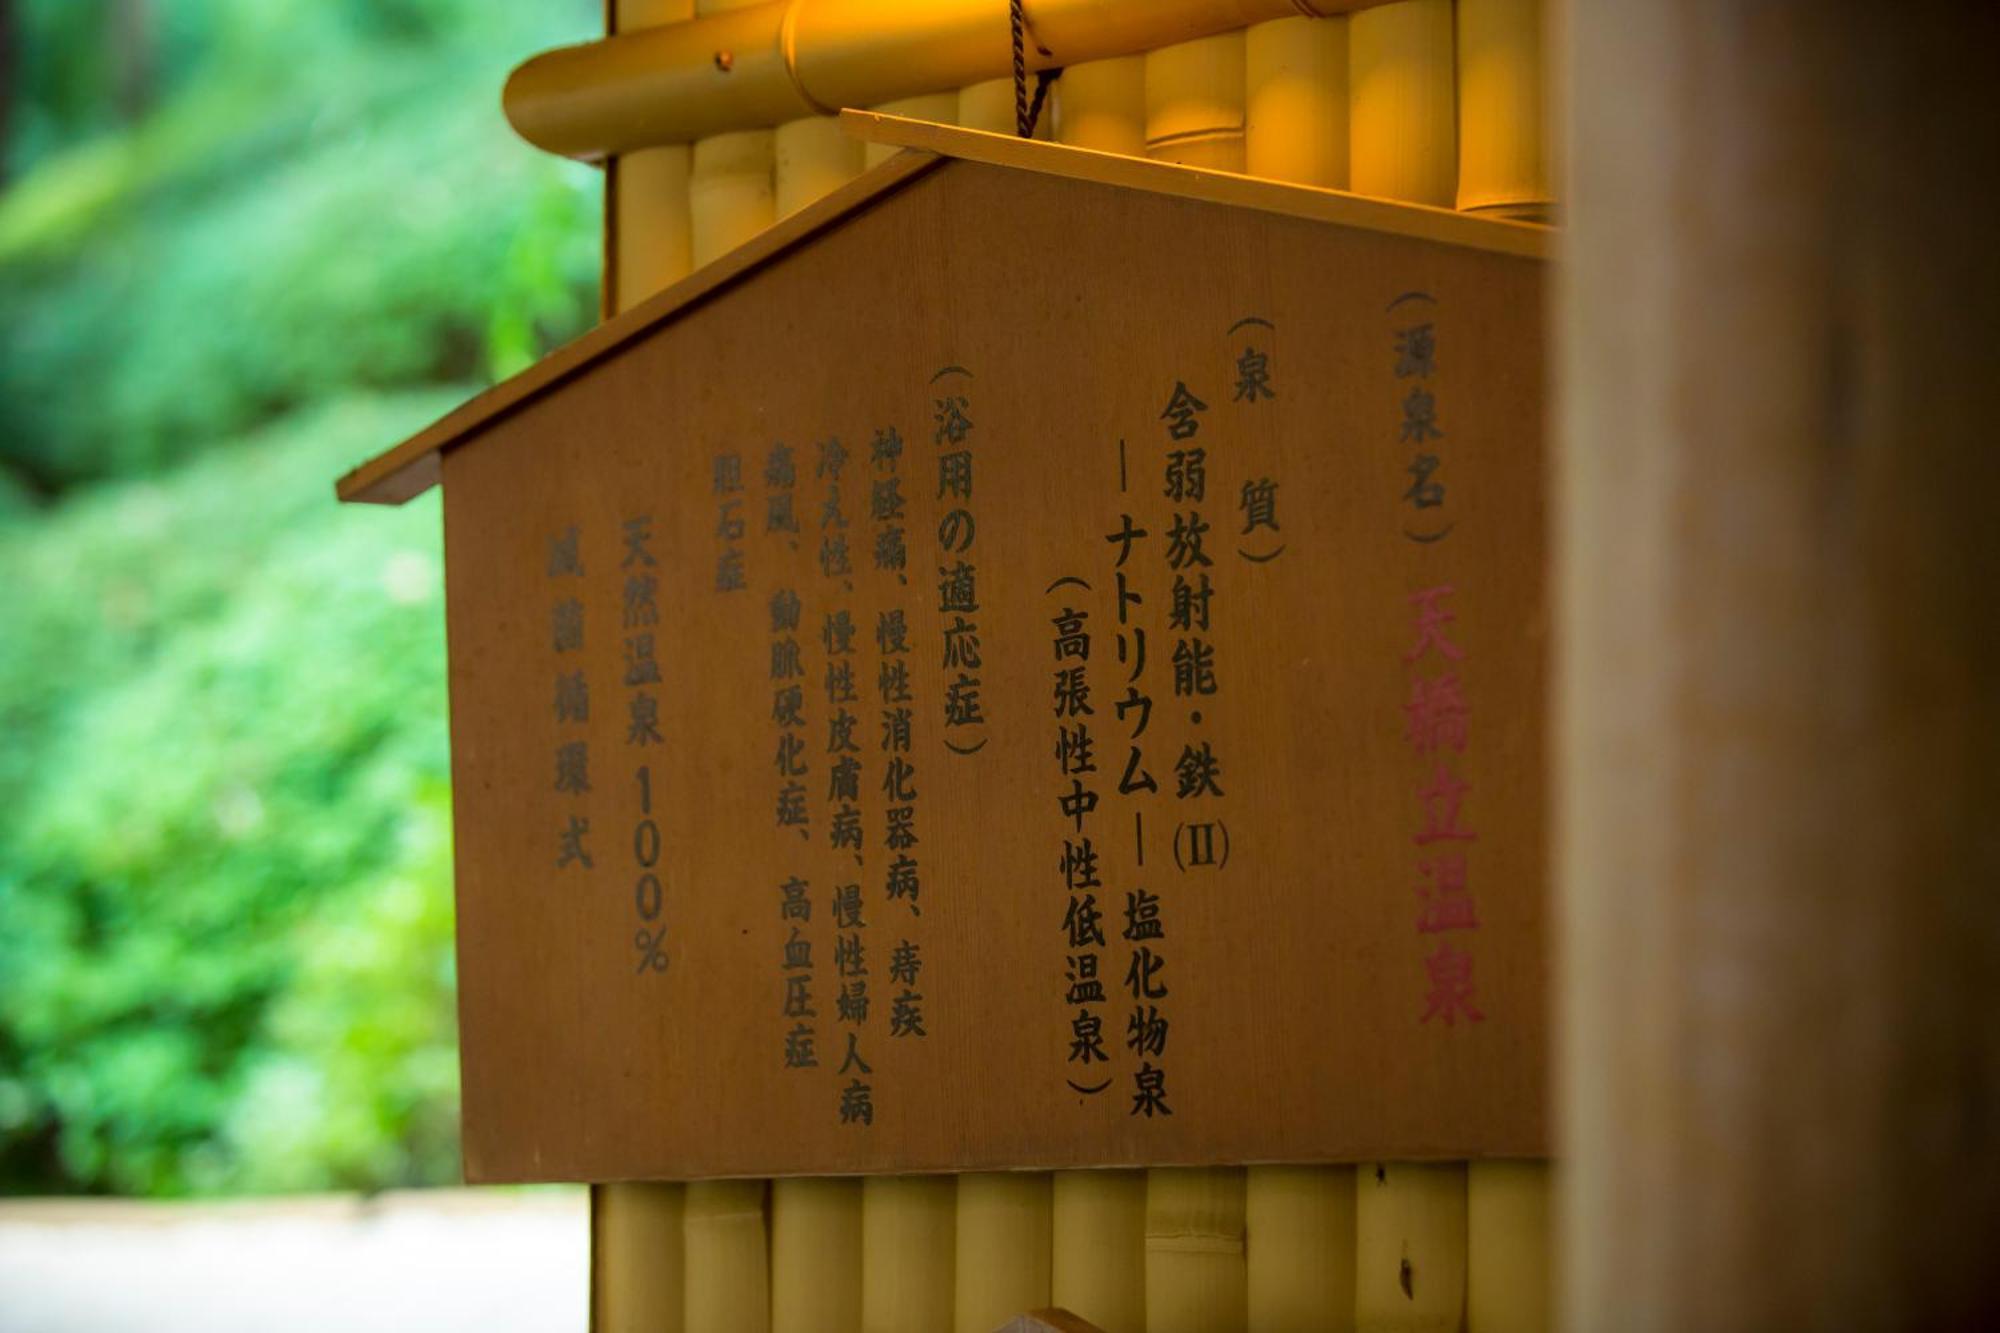 (源泉名) 天橋立温泉
(泉 質)
含弱放射能・鉄(Ⅱ)
―ナトリウム―塩化物泉
(高張性中性低温泉)
(浴用の適応症)
神経痛、慢性消化器病、痔疾
冷え性、慢性皮膚病、慢性婦人病
痛風、動脈硬化症、高血圧症
胆石症
天然温泉100%
滅菌循環式